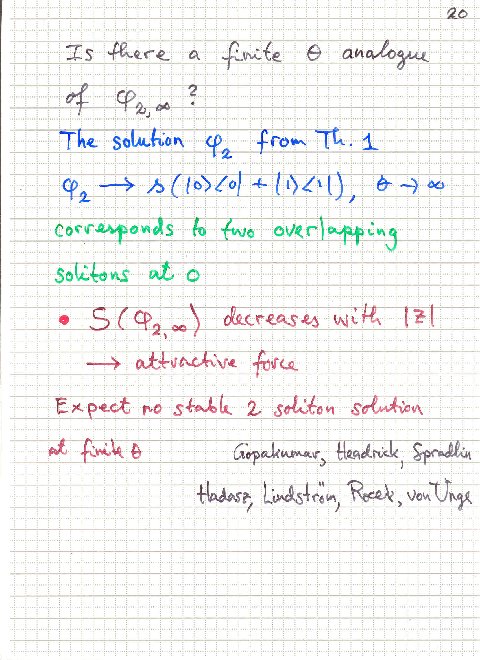 20
Is there a finite θ analogue
of φ₂,∞ ?
The solution φ₂ from Th. 1
φ₂ → s(|0><0| + |1><1|), θ → ∞
corresponds to two overlapping
solitons at 0
• S(φ₂,∞) decreases with |z|
→ attractive force
Expect no stable 2 soliton solution
at finite θ
Gopakumar, Headrick, Spradlin
Hadasz, Lindström, Rocek, von Unge